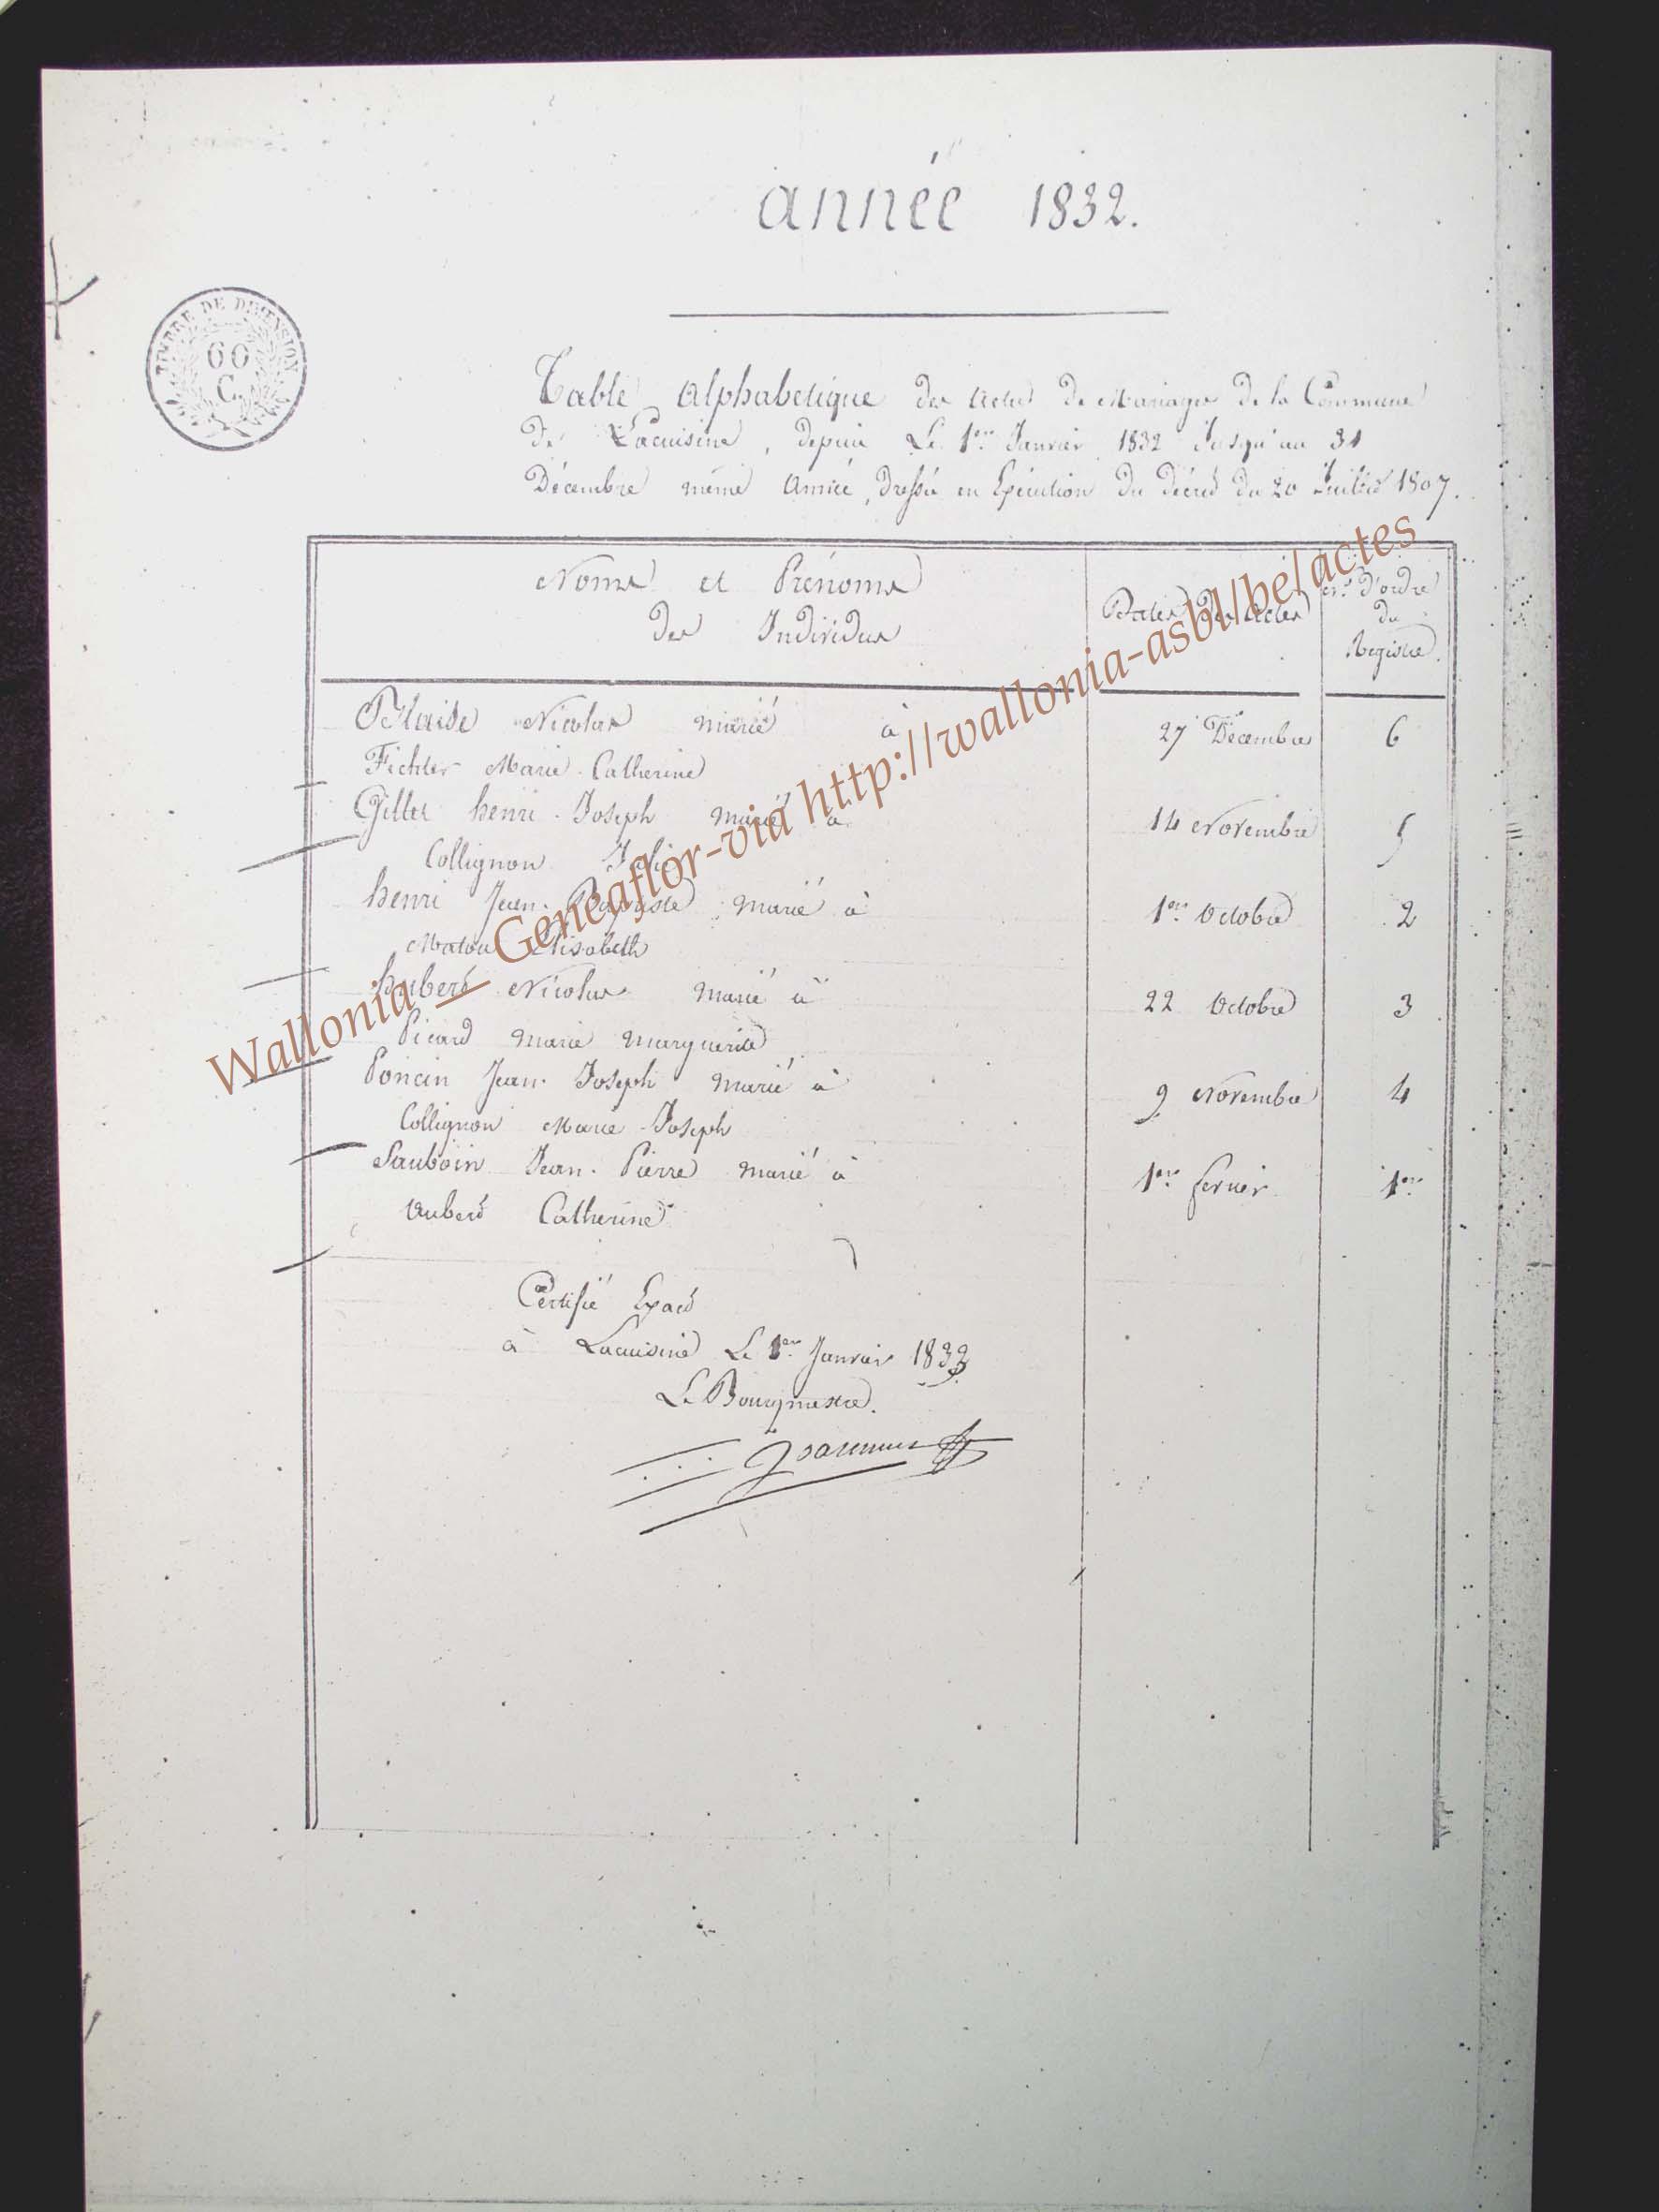 année 1832.
TIMBRE DE DIMENSION
60
C.
Table Alphabetique des Actes de Mariages de la Commune
de Lacuisine, depuis Le 1er Janvier 1832 Jusqu'au 31
Décembre même Année, Dressée en Exécution du décret du 20 Juillet 1807.
Noms et Prénoms
des Individus
Dates des Actes
nos. d'ordre
du
Registre.
Blaise Nicolas marié à
27 Décembre
6
Fichter Marie-Catherine
Gillet henri-Joseph marié à
14 Novembre
5
Collignon Julie
henri Jean-Baptiste marié à
1er Octobre
2
Elisabeth
hubert Nicolas marié à
22 Octobre
3
Picard marie marguerite
Poncin Jean-Joseph marié à
9 Novembre
4
Collignon Marie-Joseph
Sauboin Jean-Pierre marié à
1er fevrier
1er
Aubert Catherine
Certifié Exact
à Lacuisine Le 1er Janvier 1833.
Le Bourgmestre.
Wallonia - Geneaflor-via http://wallonia-asbl/be/actes